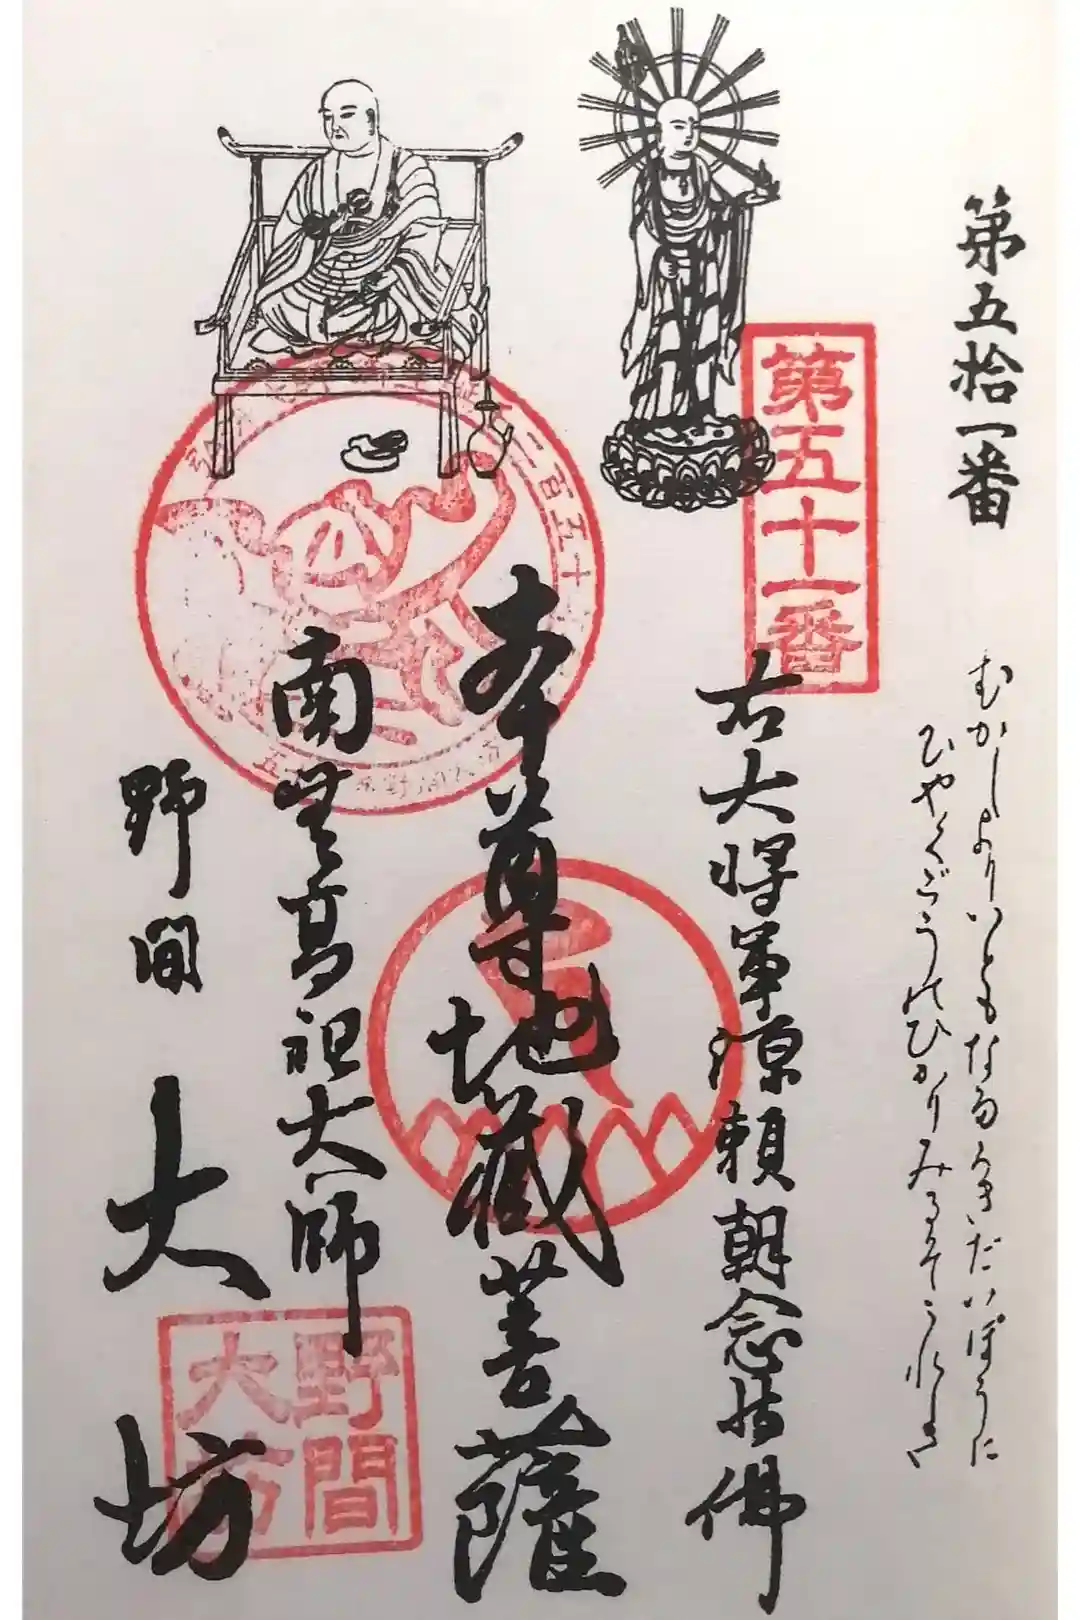 第五拾一番
むかしよりいともなだかきだいぼうに
ひやくごうのひかりみるぞうれしき
第五十一番
右大将軍源頼朝念持佛
本尊地蔵菩薩
南無高祖大師
野間
大坊
二百五十
野間
大坊